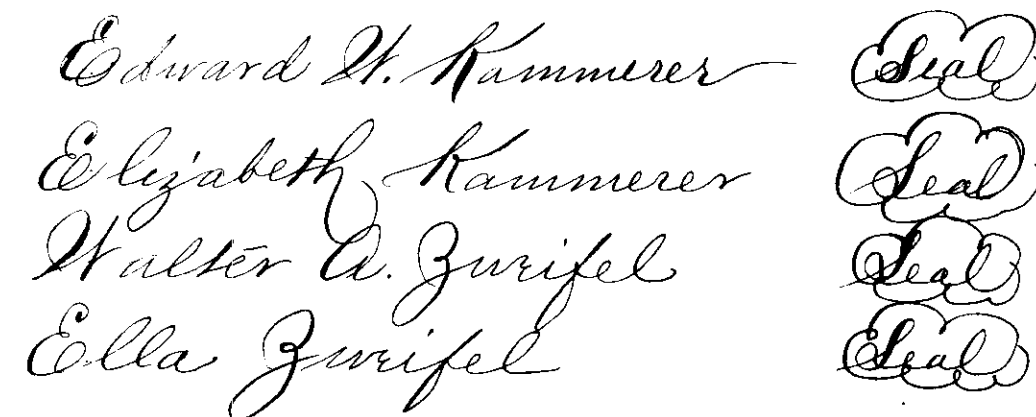 Edward W. Kammerer Seal
Elizabeth Kammerer Seal
Walter A. Zweifel Seal
Ella Zweifel Seal